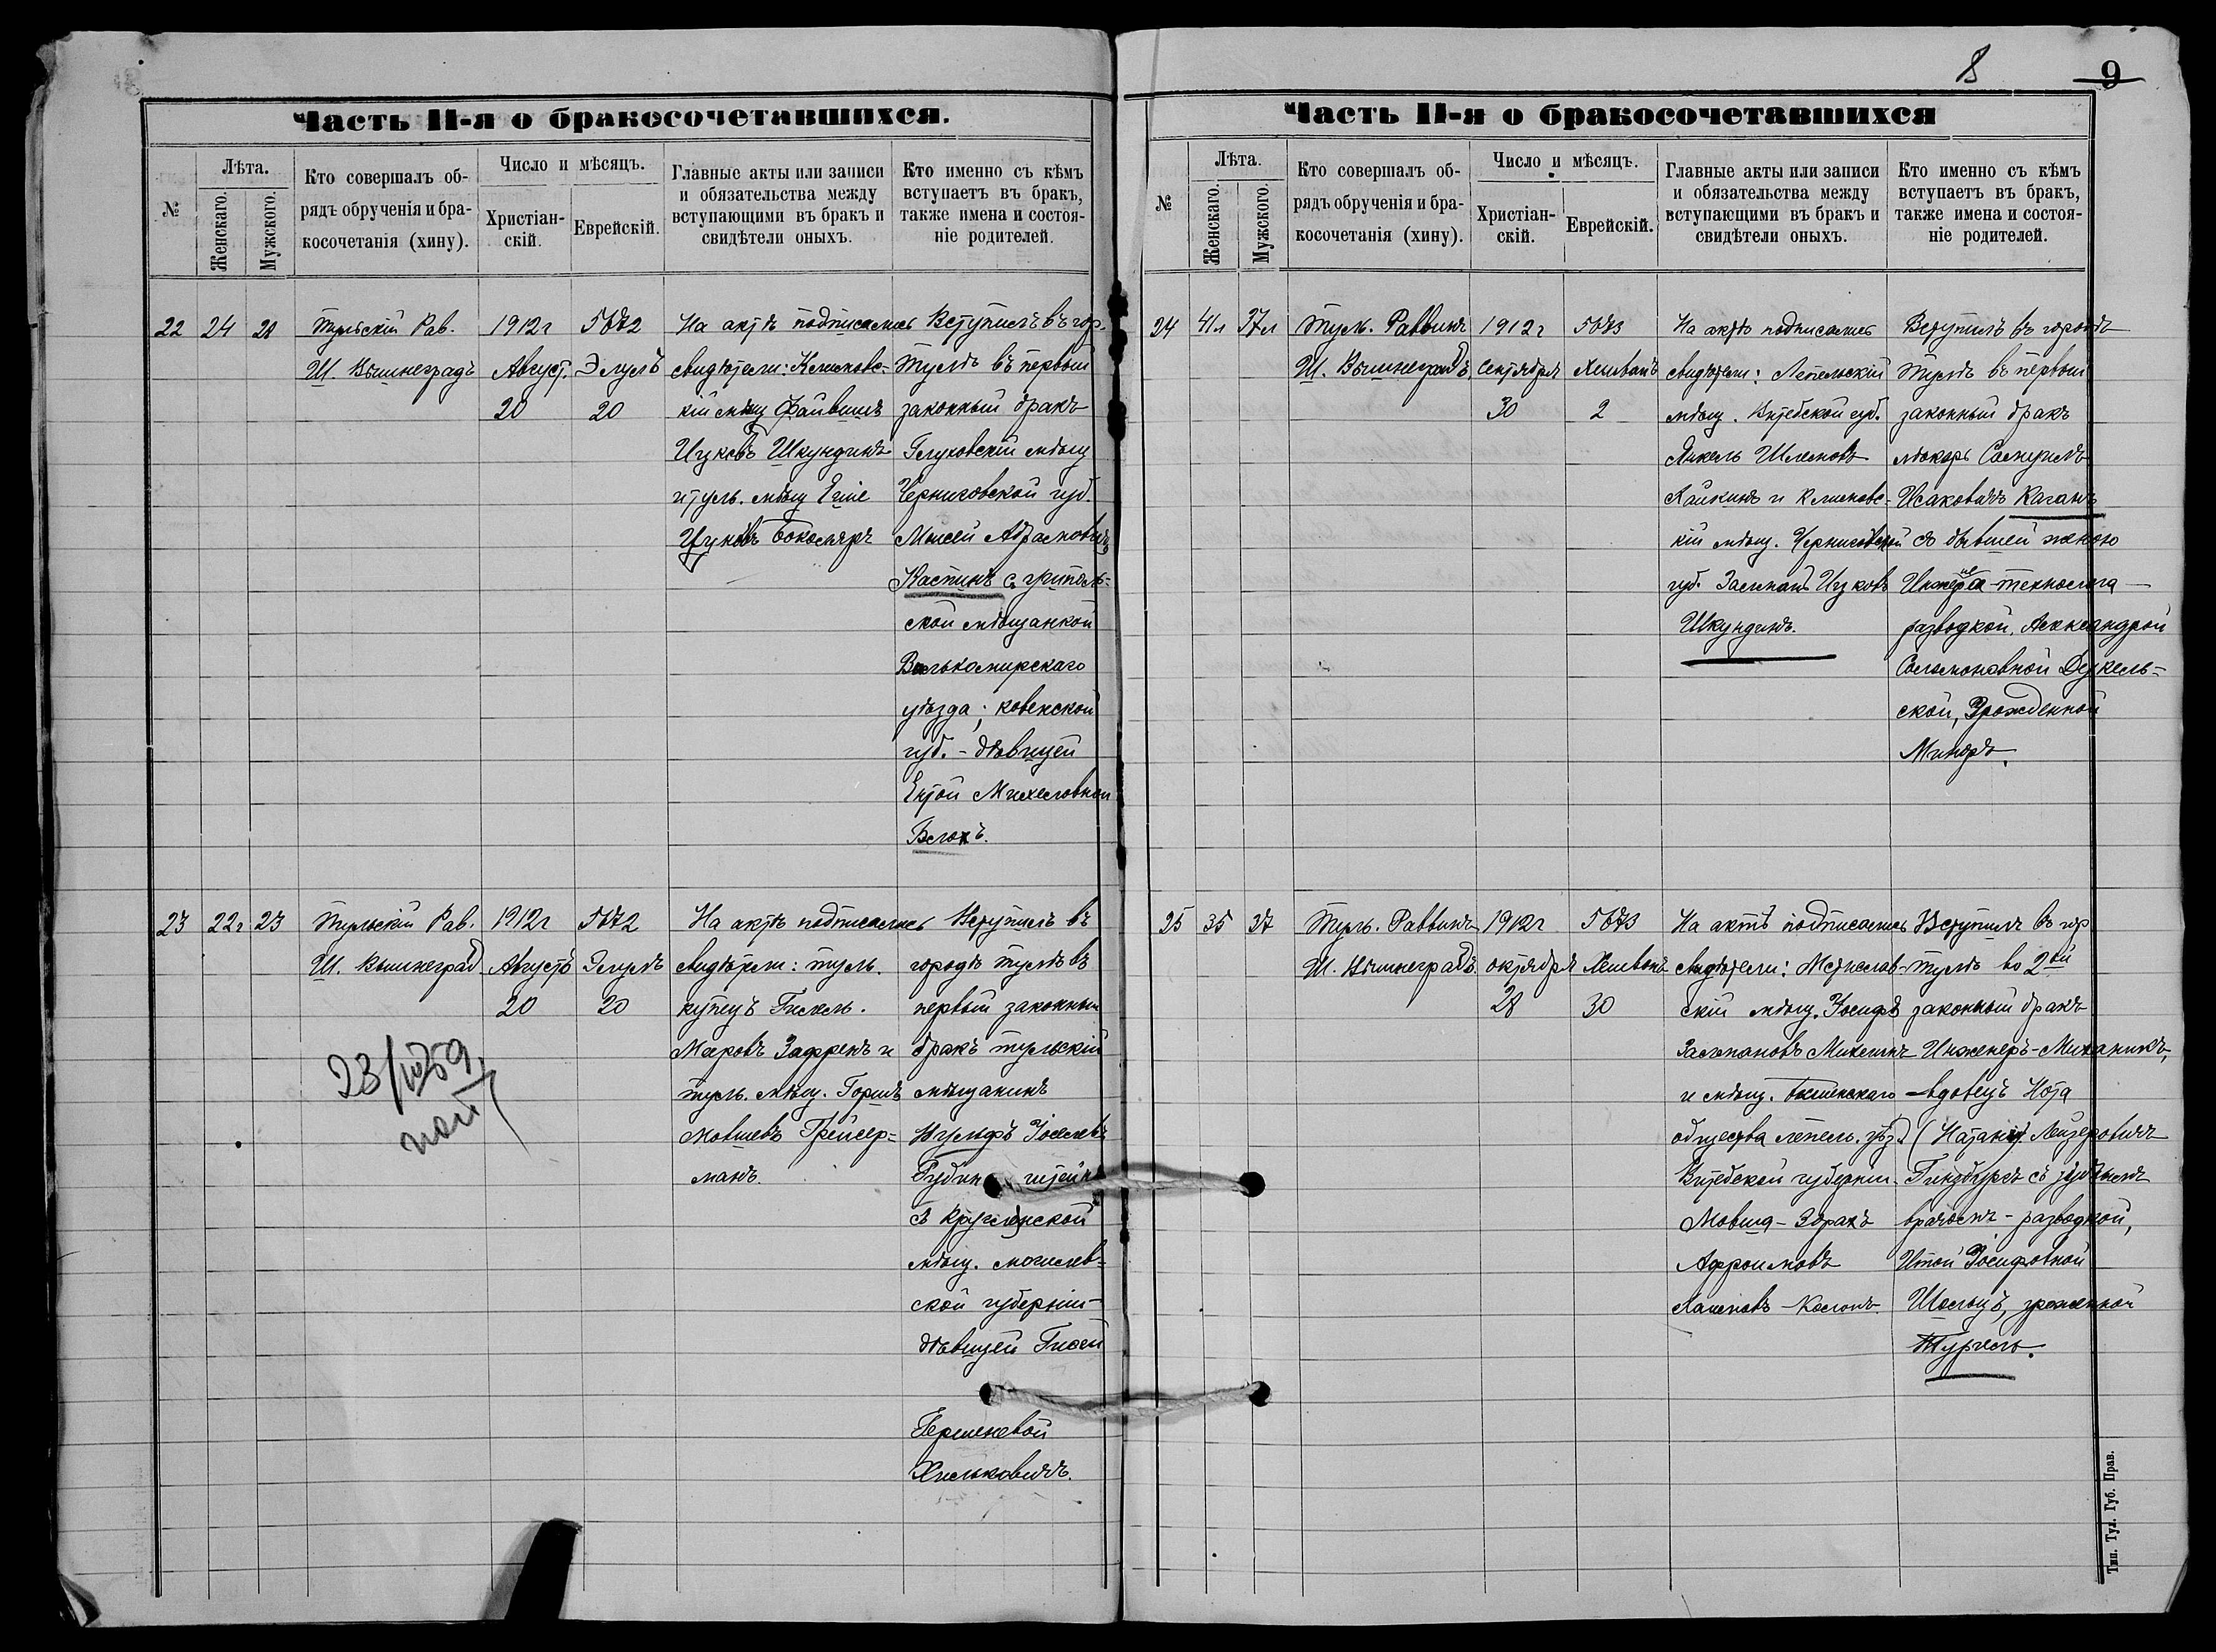 Часть II-я о бракосочетавшихся.
№
Лѣта.
Женскаго.
Мужского.
Кто совершалъ об-
рядъ обрученія и бра-
косочетанія (хину).
Число и мѣсяцъ.
Христіан-
скій.
Еврейскій.
Главные акты или записи
и обязательства между
вступающими въ бракъ и
свидѣтели оныхъ.
Кто именно съ кѣмъ
вступаетъ въ бракъ,
также имена и состоя-
ніе родителей.
22
24
28
Тульскій Рав.
Ш. Вышнеградъ
1912 г
Август.
20
5672
Элулъ
20
На актѣ подписались
свидѣтели: Климовс-
кій мѣщ Файвишъ
Ицковъ Шкундинъ
и тул. мѣщ Еше
Ицковъ Бокомляръ
Вступилъ въ гор.
Тулѣ въ первый
законный бракъ
Глуховскій мѣщ
Черниговской губ
Моисей Абрамовичъ
Настинъ с
ской мѣщанкой
Вилькомирскаго
уѣзда; ковенской
губ. - дѣвицей
Ентой Михелевной
Блохъ.
23
22 г
23
Тульскій Рав.
Ш. Вышнеград
1912 г
Августъ
20
5672
Элулъ
20
На актѣ подписались
свидѣтели: туль.
купецъ Гилель.
Мееровъ Зафренъ и
туль. мѣщ. Горшъ
Мовшевъ Грейсер-
манъ.
Вступилъ въ
городѣ Тулѣ въ
первый законный
бракъ тульскій
мѣщанинъ
Вульфъ Іоселевъ
Рубин
съ Круглянской
мѣщ. могилев-
ской губерніи-
дѣвицей Гисей
Гершеневой
Хильковичъ.
23/
Часть II-я о бракосочетавшихся
8
9
№
Лѣта.
Женскаго.
Мужского.
Кто совершалъ об-
рядъ обрученія и бра-
косочетанія (хину).
Число и мѣсяцъ.
Христіан-
скій.
Еврейскій.
Главные акты или записи
и обязательства между
вступающими въ бракъ и
свидѣтели оныхъ.
Кто именно съ кѣмъ
вступаетъ въ бракъ,
также имена и состоя-
ніе родителей.
24
41 л
37 л
Туль. Раввинъ
Ш. Вышнеградъ
1912 г
Сентября
30
5673
Хешванъ
2
На актѣ подписались
свидѣтели: Лепельскій
мѣщ. Витебской губ.
Янкель Шлемовъ
Хайкинъ и Климовс-
кій мѣщ. Черниговской
губ. Залманъ Ицковъ
Шкундинъ.
Вступилъ въ городѣ
Тулѣ въ первый
законный бракъ
лѣкарь Самуилъ
Исаковичъ Каганъ
съ бывшей женою
Инженера-технолога —
разводкой, Александрой
Соломоновной Дункель-
ской, Урожденной
Миноръ.
25
35
37
Туль. Раввинъ
Ш. Вышнеградъ
1912 г
октября
28
5673
Хешвонъ
30
На актѣ подписались
свидѣтели: Мстислав-
скій мѣщ. Іосифъ
Залмановъ Михлинъ
и мѣщ.
общества лепель. уѣз.
Витебской губерніи
Мовша-Эорахъ
Афроимовъ
Хаимовъ - Каганъ.
Вступилъ въ гор
Тулѣ во 2ой
законный бракъ
Инженеръ-Механикъ,
- вдовецъ Нота
(Натанъ) Лейзеровичъ
Гинзбургъ съ зубнымъ
врачомъ - разводкой,
Итой Іосифовной
Шолоцъ, урожденной
Тургель.
Тип. Тул. Губ. Прав.